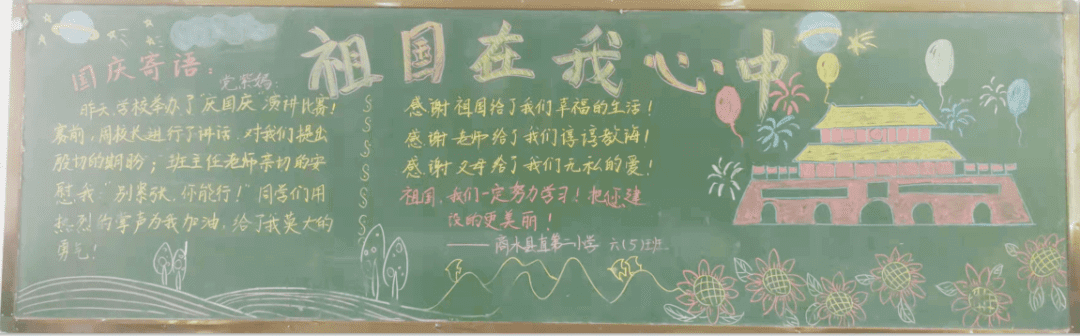 祖国在我心中
国庆寄语:
昨天,学校举办了"庆国庆"演讲比赛!
赛前,周校长进行了讲话,对我们提出
殷切的期盼;班主任老师亲切的安
慰我"别紧张,你能行!"同学们用
热烈的掌声为我加油,给了我莫大的
勇气!
感谢祖国给了我们幸福的生活!
感谢老师给了我们谆谆教诲!
感谢父母给了我们无私的爱!
祖国,我们一定努力学习!把您建
设的更美丽!
——商水县直第二小学 六(5)班